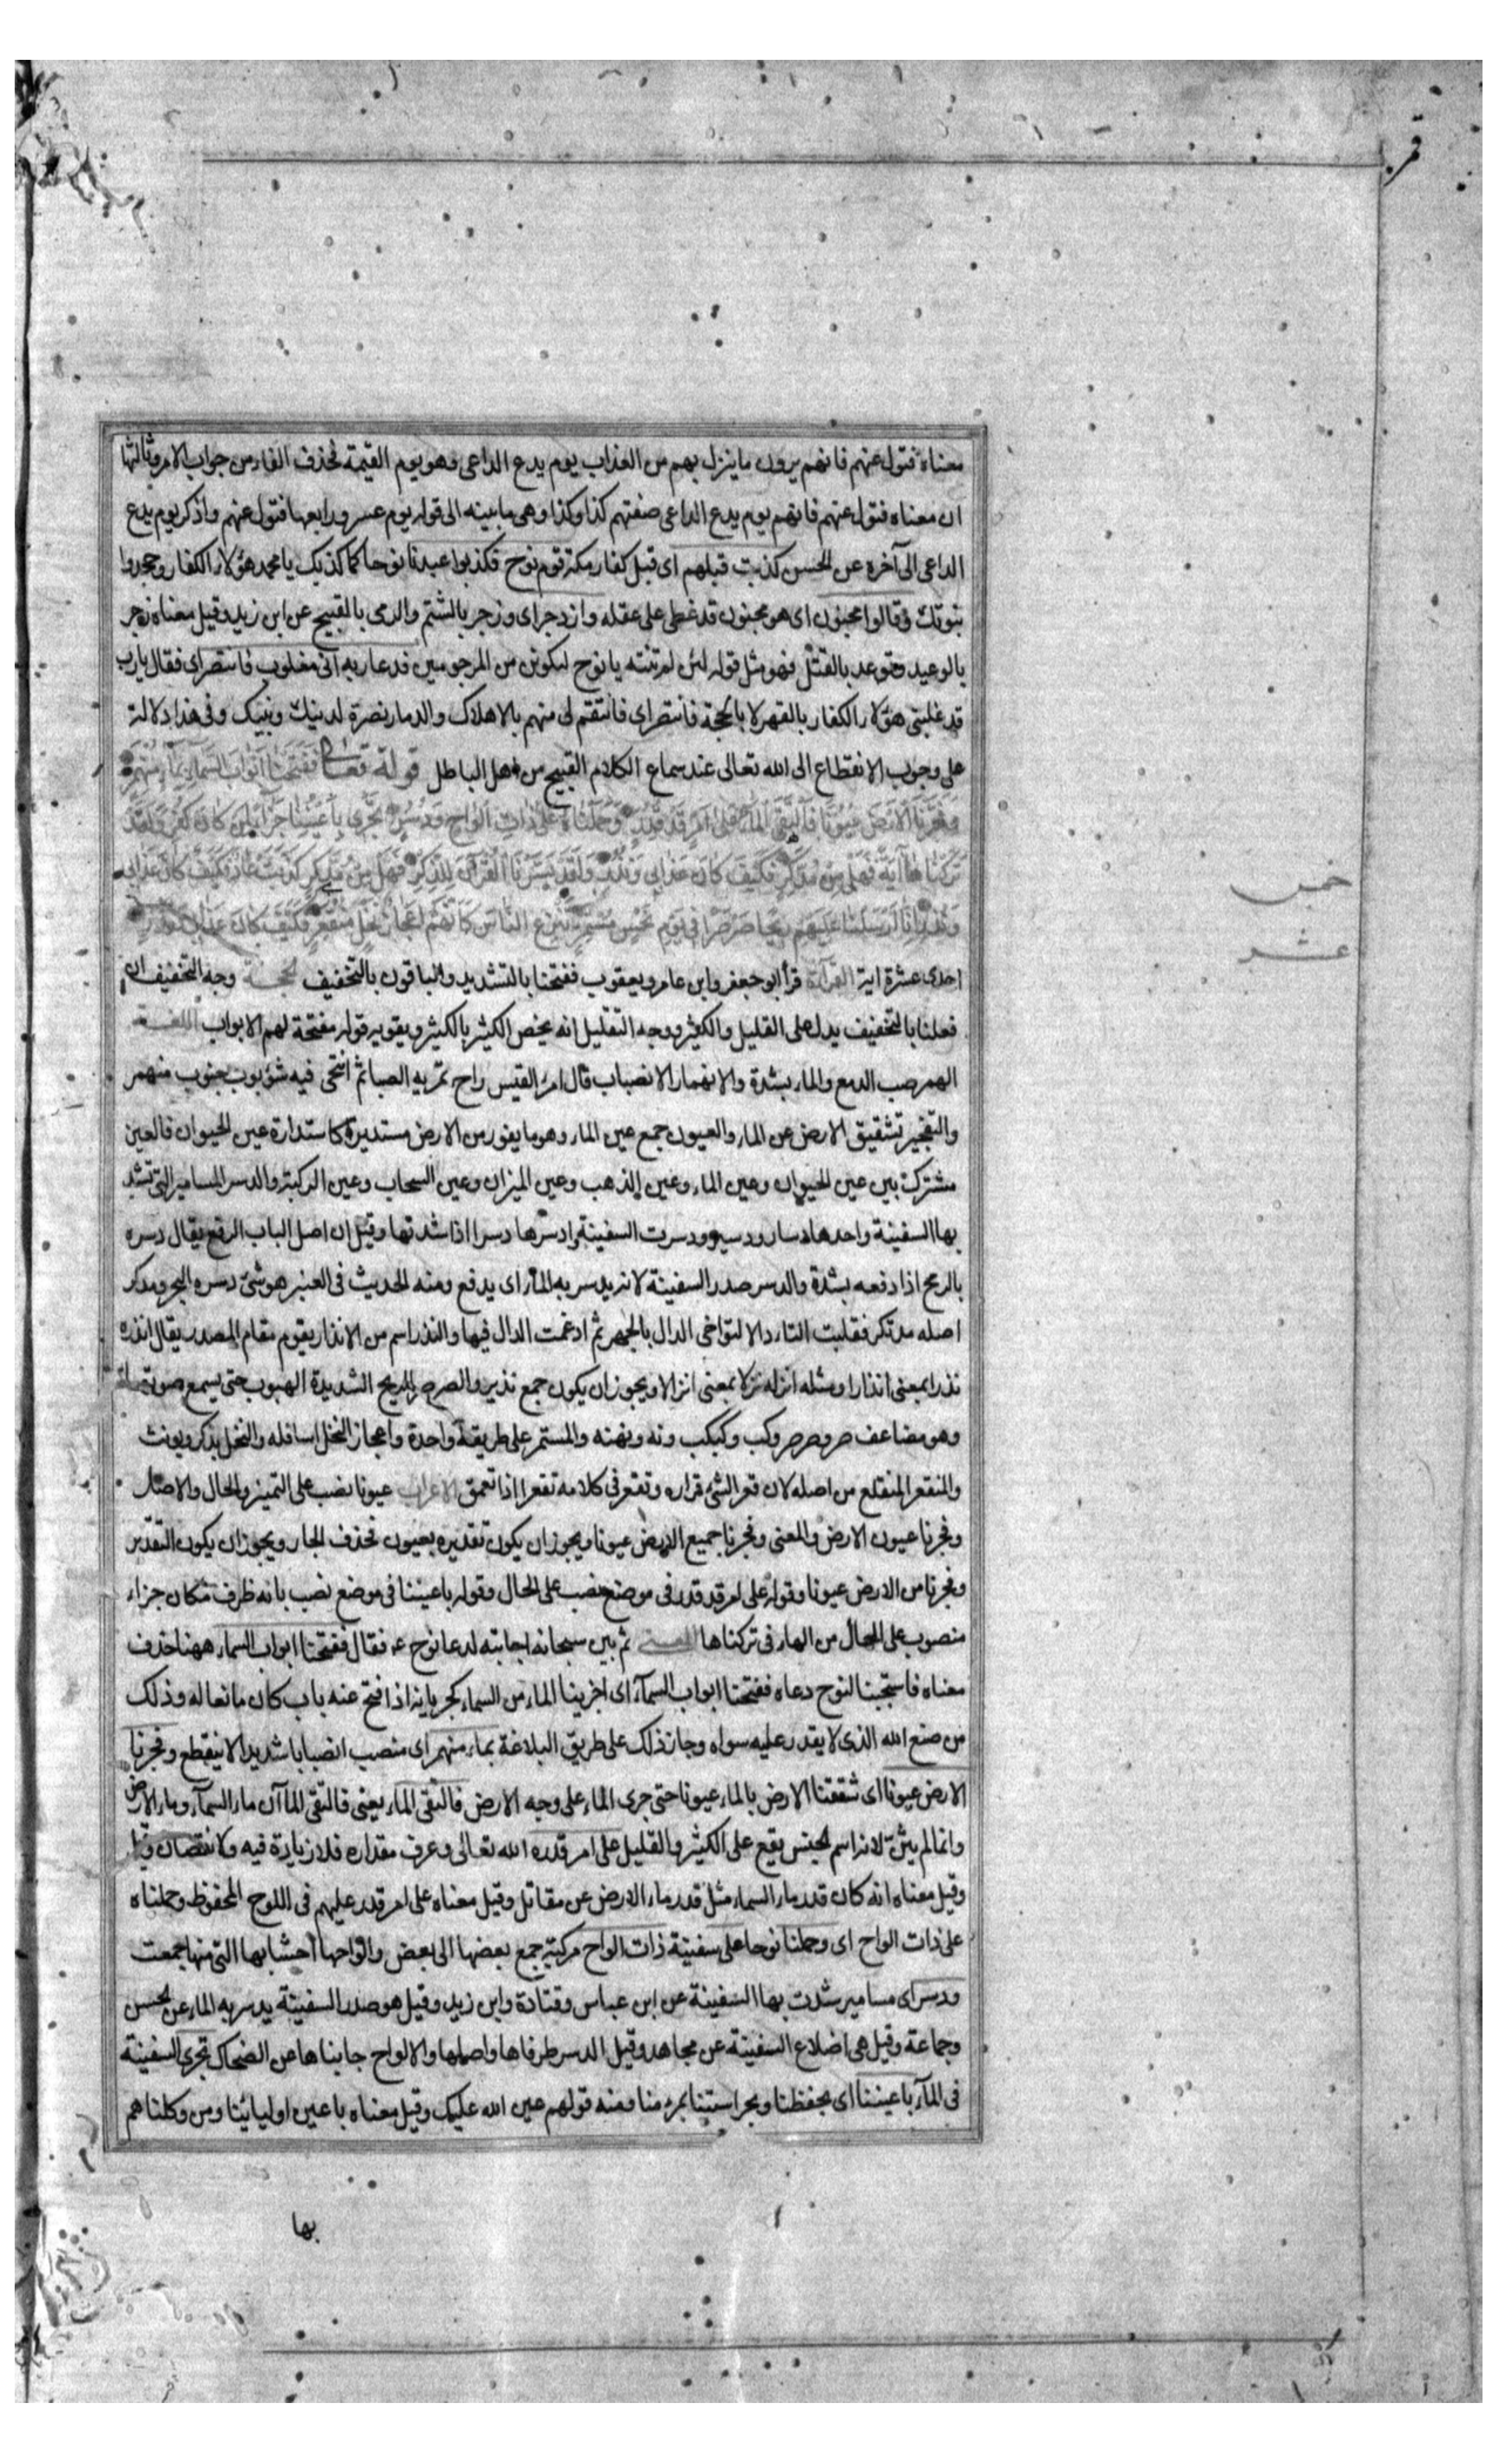 قمر
معناه فتول عنهم فانهم يرون ما ينزل بهم من العذاب يوم يدع الداعى وهو يوم القيمة فحذف الفاء من جواب الامر وثالثها
ان معناه فتول عنهم فانهم يوم يدع الداعى صفتهم كذا وكذا وهى ما بينه الى قوله يوم عسر ورابعها فتول عنهم واذكر يوم يدع
الداعى الى آخره عن الحسن كذبت قبلهم اى قبل كفار مكة قوم نوح فكذبوا عبدنا نوحا كما كذبك يا محمد هؤلاء الكفار وجحدوا
نبوتك وقالوا مجنون اى هو مجنون قد غطى على عقله وازدجر اى وزجر بالشتم والرمى بالقبيح عن ابن زيد وقيل معناه زجر
بالوعيد وتوعد بالقتل فهو مثل قوله لئن لم تنته يا نوح لتكونن من المرجومين فدعا ربه انى مغلوب فانتصر اى فقال يا رب
قد غلبنى هؤلاء الكفار بالقهر لا بالحجة فانتصر اى فانتقم لى منهم بالاهلاك والدمار نصرة لدينك ونبيك وفى هذا دلالة
على وجوب الانقطاع الى الله تعالى عند سماع الكلام القبيح من اهل الباطل قوله تعالى فَفَتَحْنَا أَبْوَابَ السَّمَاءِ بِمَاءٍ مُنْهَمِرٍ
وَفَجَّرْنَا الْأَرْضَ عُيُونًا فَالْتَقَى الْمَاءُ عَلَى أَمْرٍ قَدْ قُدِرَ وَحَمَلْنَاهُ عَلَى ذَاتِ أَلْوَاحٍ وَدُسُرٍ تَجْرِي بِأَعْيُنِنَا جَزَاءً لِمَنْ كَانَ كُفِرَ وَلَقَدْ
تَرَكْنَاهَا آيَةً فَهَلْ مِنْ مُدَّكِرٍ فَكَيْفَ كَانَ عَذَابِي وَنُذُرِ وَلَقَدْ يَسَّرْنَا الْقُرْآنَ لِلذِّكْرِ فَهَلْ مِنْ مُدَّكِرٍ كَذَّبَتْ عَادٌ فَكَيْفَ كَانَ عَذَابِي
وَنُذُرِ إِنَّا أَرْسَلْنَا عَلَيْهِمْ رِيحًا صَرْصَرًا فِي يَوْمِ نَحْسٍ مُسْتَمِرٍّ تَنْزِعُ النَّاسَ كَأَنَّهُمْ أَعْجَازُ نَخْلٍ مُنْقَعِرٍ فَكَيْفَ كَانَ عَذَابِي وَنُذُرِ
خمس
عشر
احدى عشرة اية القرآءة قرأ ابو جعفر وابن عامر ويعقوب ففتحنا بالتشديد والباقون بالتخفيف الحجة وجه التخفيف ان
فعلنا بالتخفيف يدل على القليل والكثير ووجه التثقيل انه يخص الكثير بالكثير ويقويه قوله مفتحة لهم الابواب اللغة
الهمر صب الدمع والماء بشدة والانهمار الانصباب قال امرؤ القيس راح تمريه الصبا ثم انتحى فيه شؤبوب جنوب منهمر
والتفجير تشقيق الارض عن الماء والعيون جمع عين الماء وهو ما يفور من الارض مستديرة كاستدارة عين الحيوان فالعين
مشتركة بين عين الحيوان وعين الماء وعين الذهب وعين الميزان وعين السحاب وعين الركبة والدسر المسامير التى تشد
بها السفينة واحدها دسار ودسير ودسرت السفينة ادسرها دسرا اذا شدتها وقيل ان اصل الباب الدفع يقال دسره
بالرمح اذا دفعه بشدة والدسر صدر السفينة لانه يدسر به الماء اى يدفع ومنه الحديث فى العنبر هو شئ دسره البحر ومدكر
اصله مدتكر فقلبت التاء دالا لتواخى الدال بالجهر ثم ادغمت الدال فيها والنذر اسم من الانذار يقوم مقام المصدر يقال انذره
نذرا بمعنى انذارا ومثله انزله نزلا بمعنى انزالا ويجوز ان يكون جمع نذير والصرصر الريح الشديدة الهبوب حتى يسمع صوتها
وهو مضاعف صر وصرصر وكب وكبكب ونه ونهنه والمستمر على طريقة واحدة واعجاز النخل اسافله والنخل يذكر ويونث
والمنقعر المنقلع من اصله لان قعر الشئ قراره وتقعر فى كلامه تقعرا اذا تعمق الاعراب عيونا نصب على التميز والحال والاصل
وفجرنا عيون الارض والمعنى وفجرنا جميع الارض عيونا ويجوز ان يكون تقديره بعيون فحذف الجار ويجوز ان يكون التقدير
وفجرنا من الارض عيونا وقوله على امر قد قدر فى موضع نصب على الحال وقوله باعيننا فى موضع نصب بانه ظرف مكان جزاء
منصوب على الحال من الهاء فى تركناها المعنى ثم بين سبحانه اجابته لدعا نوح عه فقال ففتحنا ابواب السماء ههنا حذف
معناه فاستجبنا لنوح دعاه ففتحنا ابواب السمآء اى اجرينا الماء من السماء كجريانه اذا فتح عنه باب كان مانعا له وذلك
من صنع الله الذى لا يقدر عليه سواه وجاز ذلك على طريق البلاغة بماء منهمر اى منصب انصبابا شديدا لا ينقطع وفجرنا
الارض عيونا اى شققنا الارض بالماء عيونا حتى جرى الماء على وجه الارض فالتقى الماء يعنى فالتقى المآآن ماء السمآء وماء الارض
وانما لم يثن لانه اسم لجنس يقع على الكثير والقليل على امر قدره الله تعالى وعرف مقداره فلا زيادة فيه ولا نقصان وقيل
وقيل معناه انه كان قدر ماء السماء مثل قدر ماء الارض عن مقاتل وقيل معناه على امر قدر عليهم فى اللوح المحفوظ وحملناه
على ذات الواح اى وحملنا نوحا على سفينة ذات الواح مركبة جمع بعضها الى بعض والواحها اخشابها التى منها جمعت
ودسر اى مسامير شدت بها السفينة عن ابن عباس وقتادة وابن زيد وقيل هو صدر السفينة يدسر به الماء عن الحسن
وجماعة وقيل هى اضلاع السفينة عن مجاهد وقيل الدسر طرفاها واصلها والالواح جانباها عن الضحاك تجرى السفينة
فى المآء باعيننا اى بحفظنا وبحراستنا بمرء منا ومنه قولهم عين الله عليك وقيل معناه باعين اوليائنا ومن وكلناهم
بها